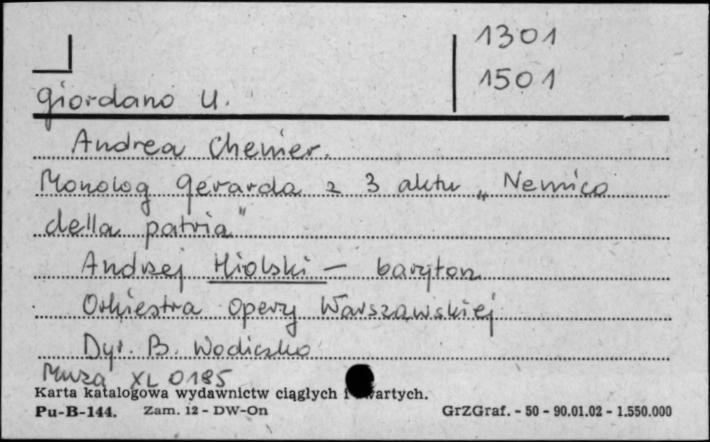 1301
1501
Giordano U.
Andrea Chenier.
Monolog Gerarda z 3 aktu „Nemico
della patria"
Andrzej Hiolski – baryton
Orkiestra Opery Warszawskiej
Dyr. B. Wodiczko
Muza XL 0185
Karta katalogowa wydawnictw ciągłych i zwartych.
Pu-B-144. Zam. 12 - DW-On GrZGraf. - 50 - 90.01.02 - 1.550.000